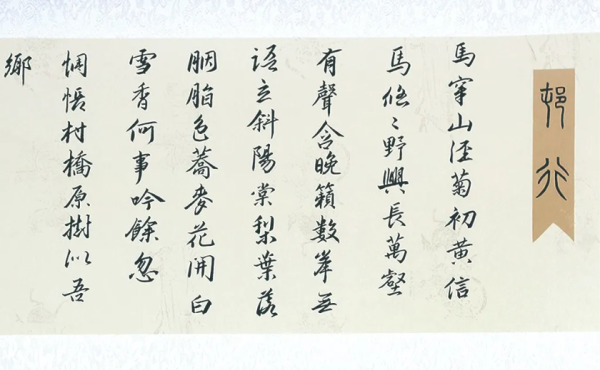 邨行
馬穿山徑菊初黃信
馬悠々野興長萬壑
有聲含晚籟數峯無
語立斜陽棠梨葉落
胭脂色蕎麥花開白
雪香何事吟餘忽
惆悵村橋原樹似吾
鄉